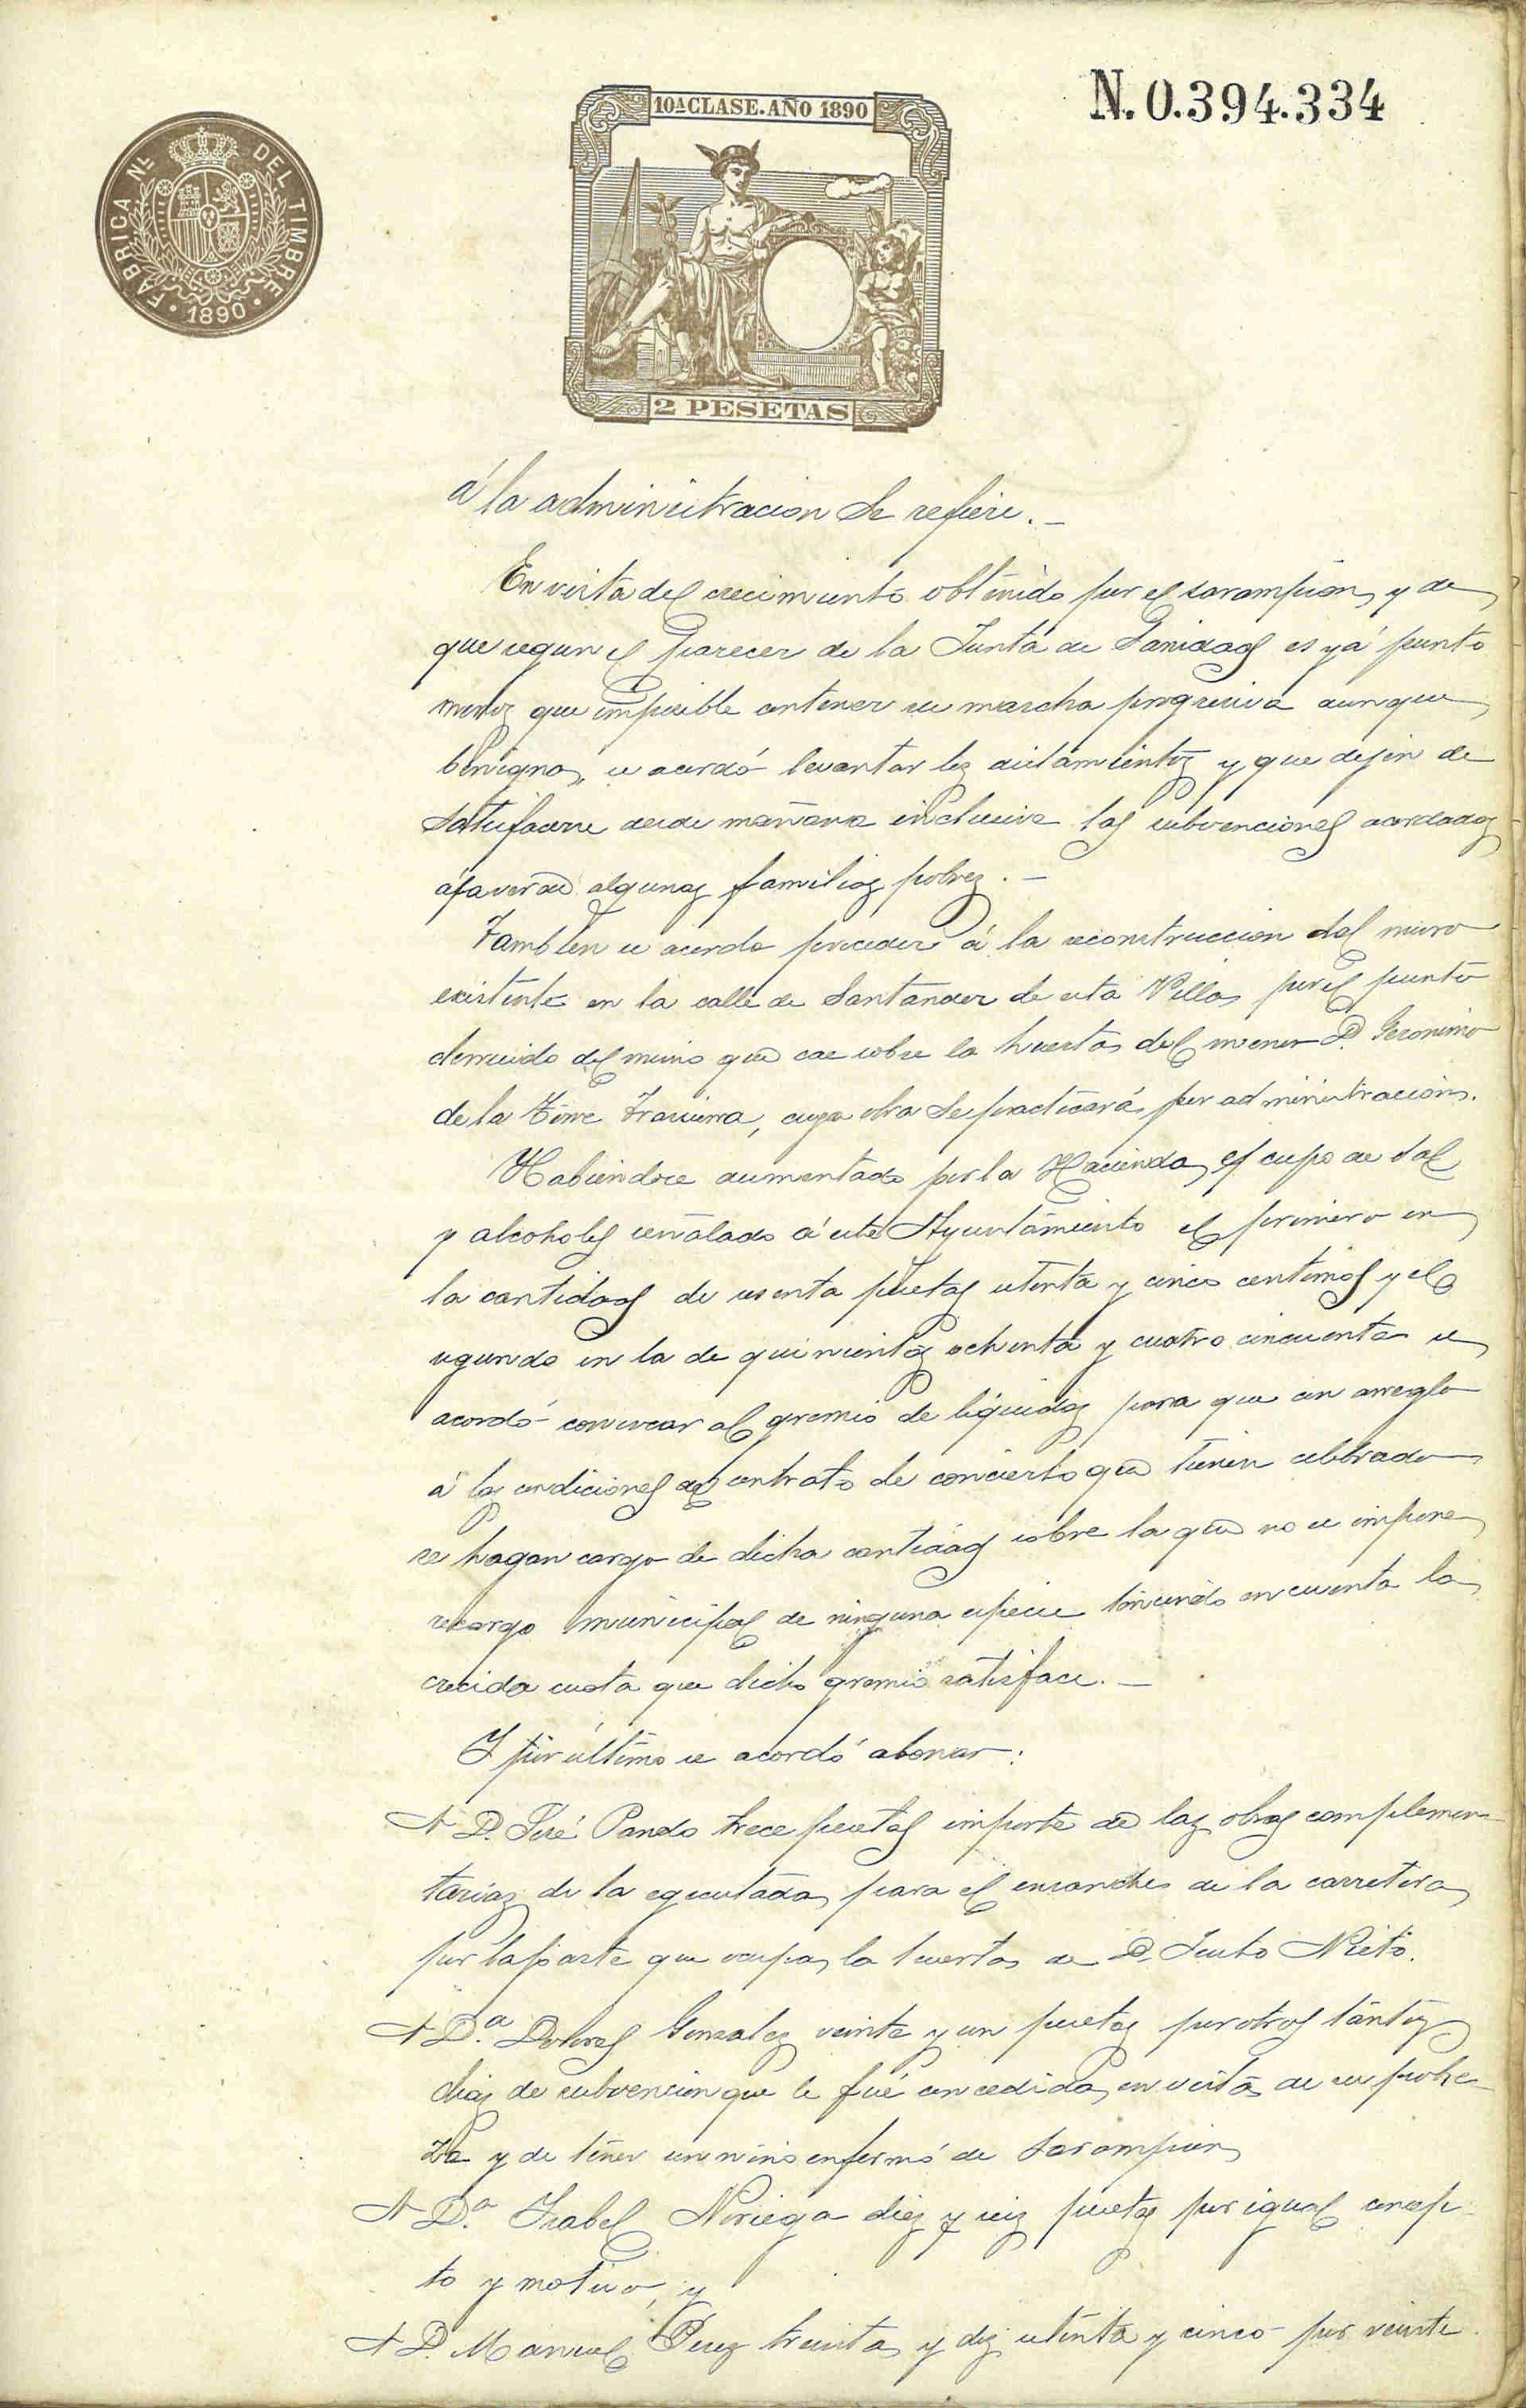 N. 0.394.334
10ª CLASE. AÑO 1890
FÁBRICA Nˡ DEL TIMBRE
1890
2 PESETAS
á la administracion se refiere.
En vista del crecimiento obtenido por el sarampion y de
que segun el parecer de la Junta de Sanidad es yá punto
menos que imposible contener su marcha progresiva aunque
benigna, se acordó levantar los aislamientos y que dejen de
satisfacerse desde mañana inclusive las subvenciones acordadas
á favor de algunas familias pobres.
Tambien se acordo proceder á la reconstruccion del muro
existente en la calle de Santander de esta Villa por el punto
derruido del mismo que cae sobre la huerta del menor D. Geronimo
de la Torre Trassierra, cuya obra se practicará por administracion.
Habiendose aumentado por la Hacienda el cupo de sal
y alcoholes señalado á este Ayuntamiento el primero en
la cantidad de sesenta pesetas setenta y cinco centimos y el
segundo en la de quinientas ochenta y cuatro cincuenta se
acordó convocar al gremio de liquidos para que con arreglo
á las condiciones del contrato de concierto que tienen celebrado
se hagan cargo de dicha cantidad sobre la que no se impone
recargo municipal de ninguna especie teniendo en cuenta la
crecida cuota que dicho gremio satisface.
Y por último se acordó abonar:
A D. José Pando trece pesetas importe de las obras complemen-
tarias de la egecutada para el ensanche de la carretera
por la parte que ocupa la huerta de D. Justo Nieto.
A D.ª Dolores Gonzalez veinte y un pesetas por otros tantos
dias de subvencion que le fué concedida en vista de su pobre-
za y de tener un niño enfermo de sarampion
A D.ª Isabel Noriega diez y seis pesetas por igual concep-
to y motivo, y
A D. Manuel Perez treinta y dos setenta y cinco por veinte